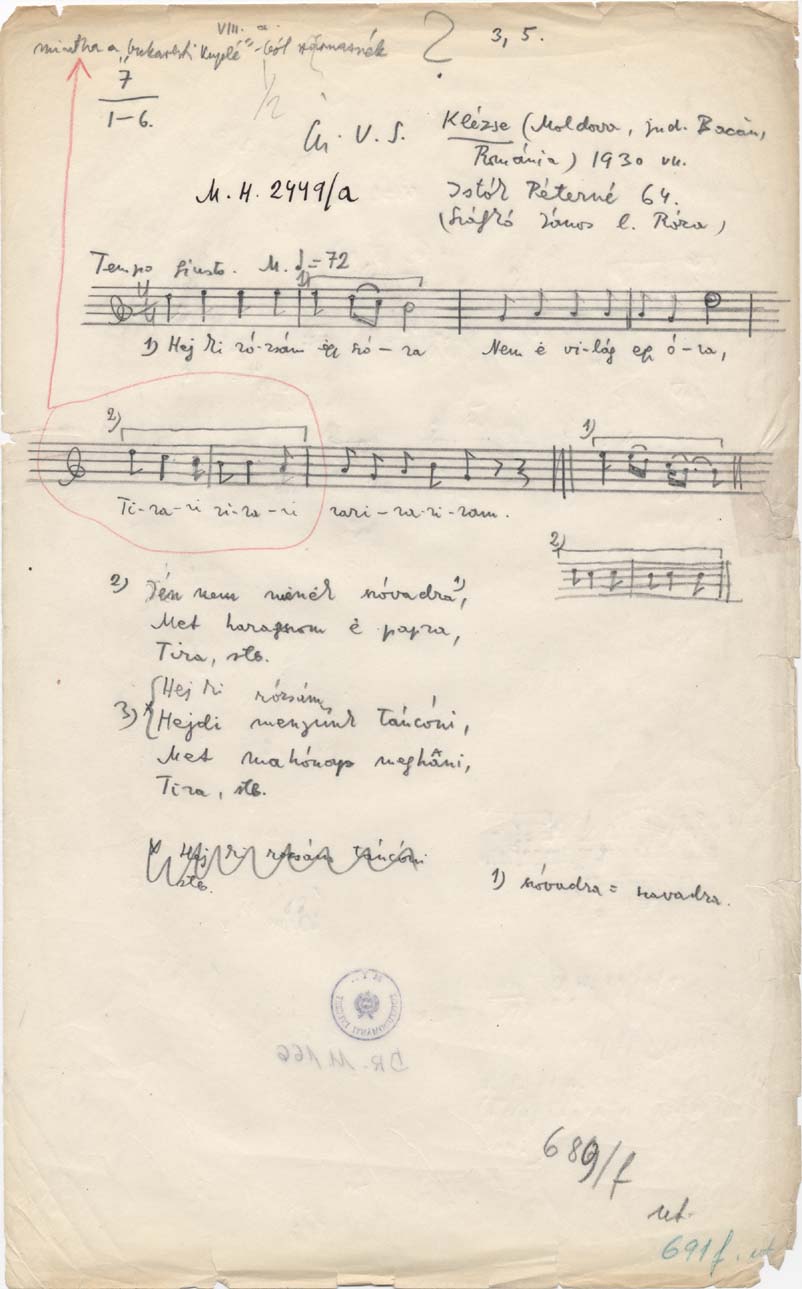 VIII. a.
mintha a „bukaresti kuplé”-ból származnék
? 3, 5.
7
1–6.
1/2
V. S. Klézse (Moldova, jud. Bacău,
Románia) 1930 VII.
M. H. 2449/a
Istók Péterné 64.
(Szálykó János l. Róza)
Tempo giusto. M. ♩=72
1)
1) Hej ki ró-zsám ep szó-ra Nem é vi-lág ep ó-ra,
2) 1)
Ti-ra-ri ri-ra-ri rari-ra-ri-ram.
2)
2) Jén nem menék szóvadra 1),
Met haragszom é papra,
Tira, stb.
Hej ki rózsám
3) Hejdi menyünk táncóni,
Met mahónap meghăni,
Tira, stb.
x Hej ki rózsám táncóni
stb.
1) szóvadra = szavadra.
DR. M 166
689/f
ut
691f. ut